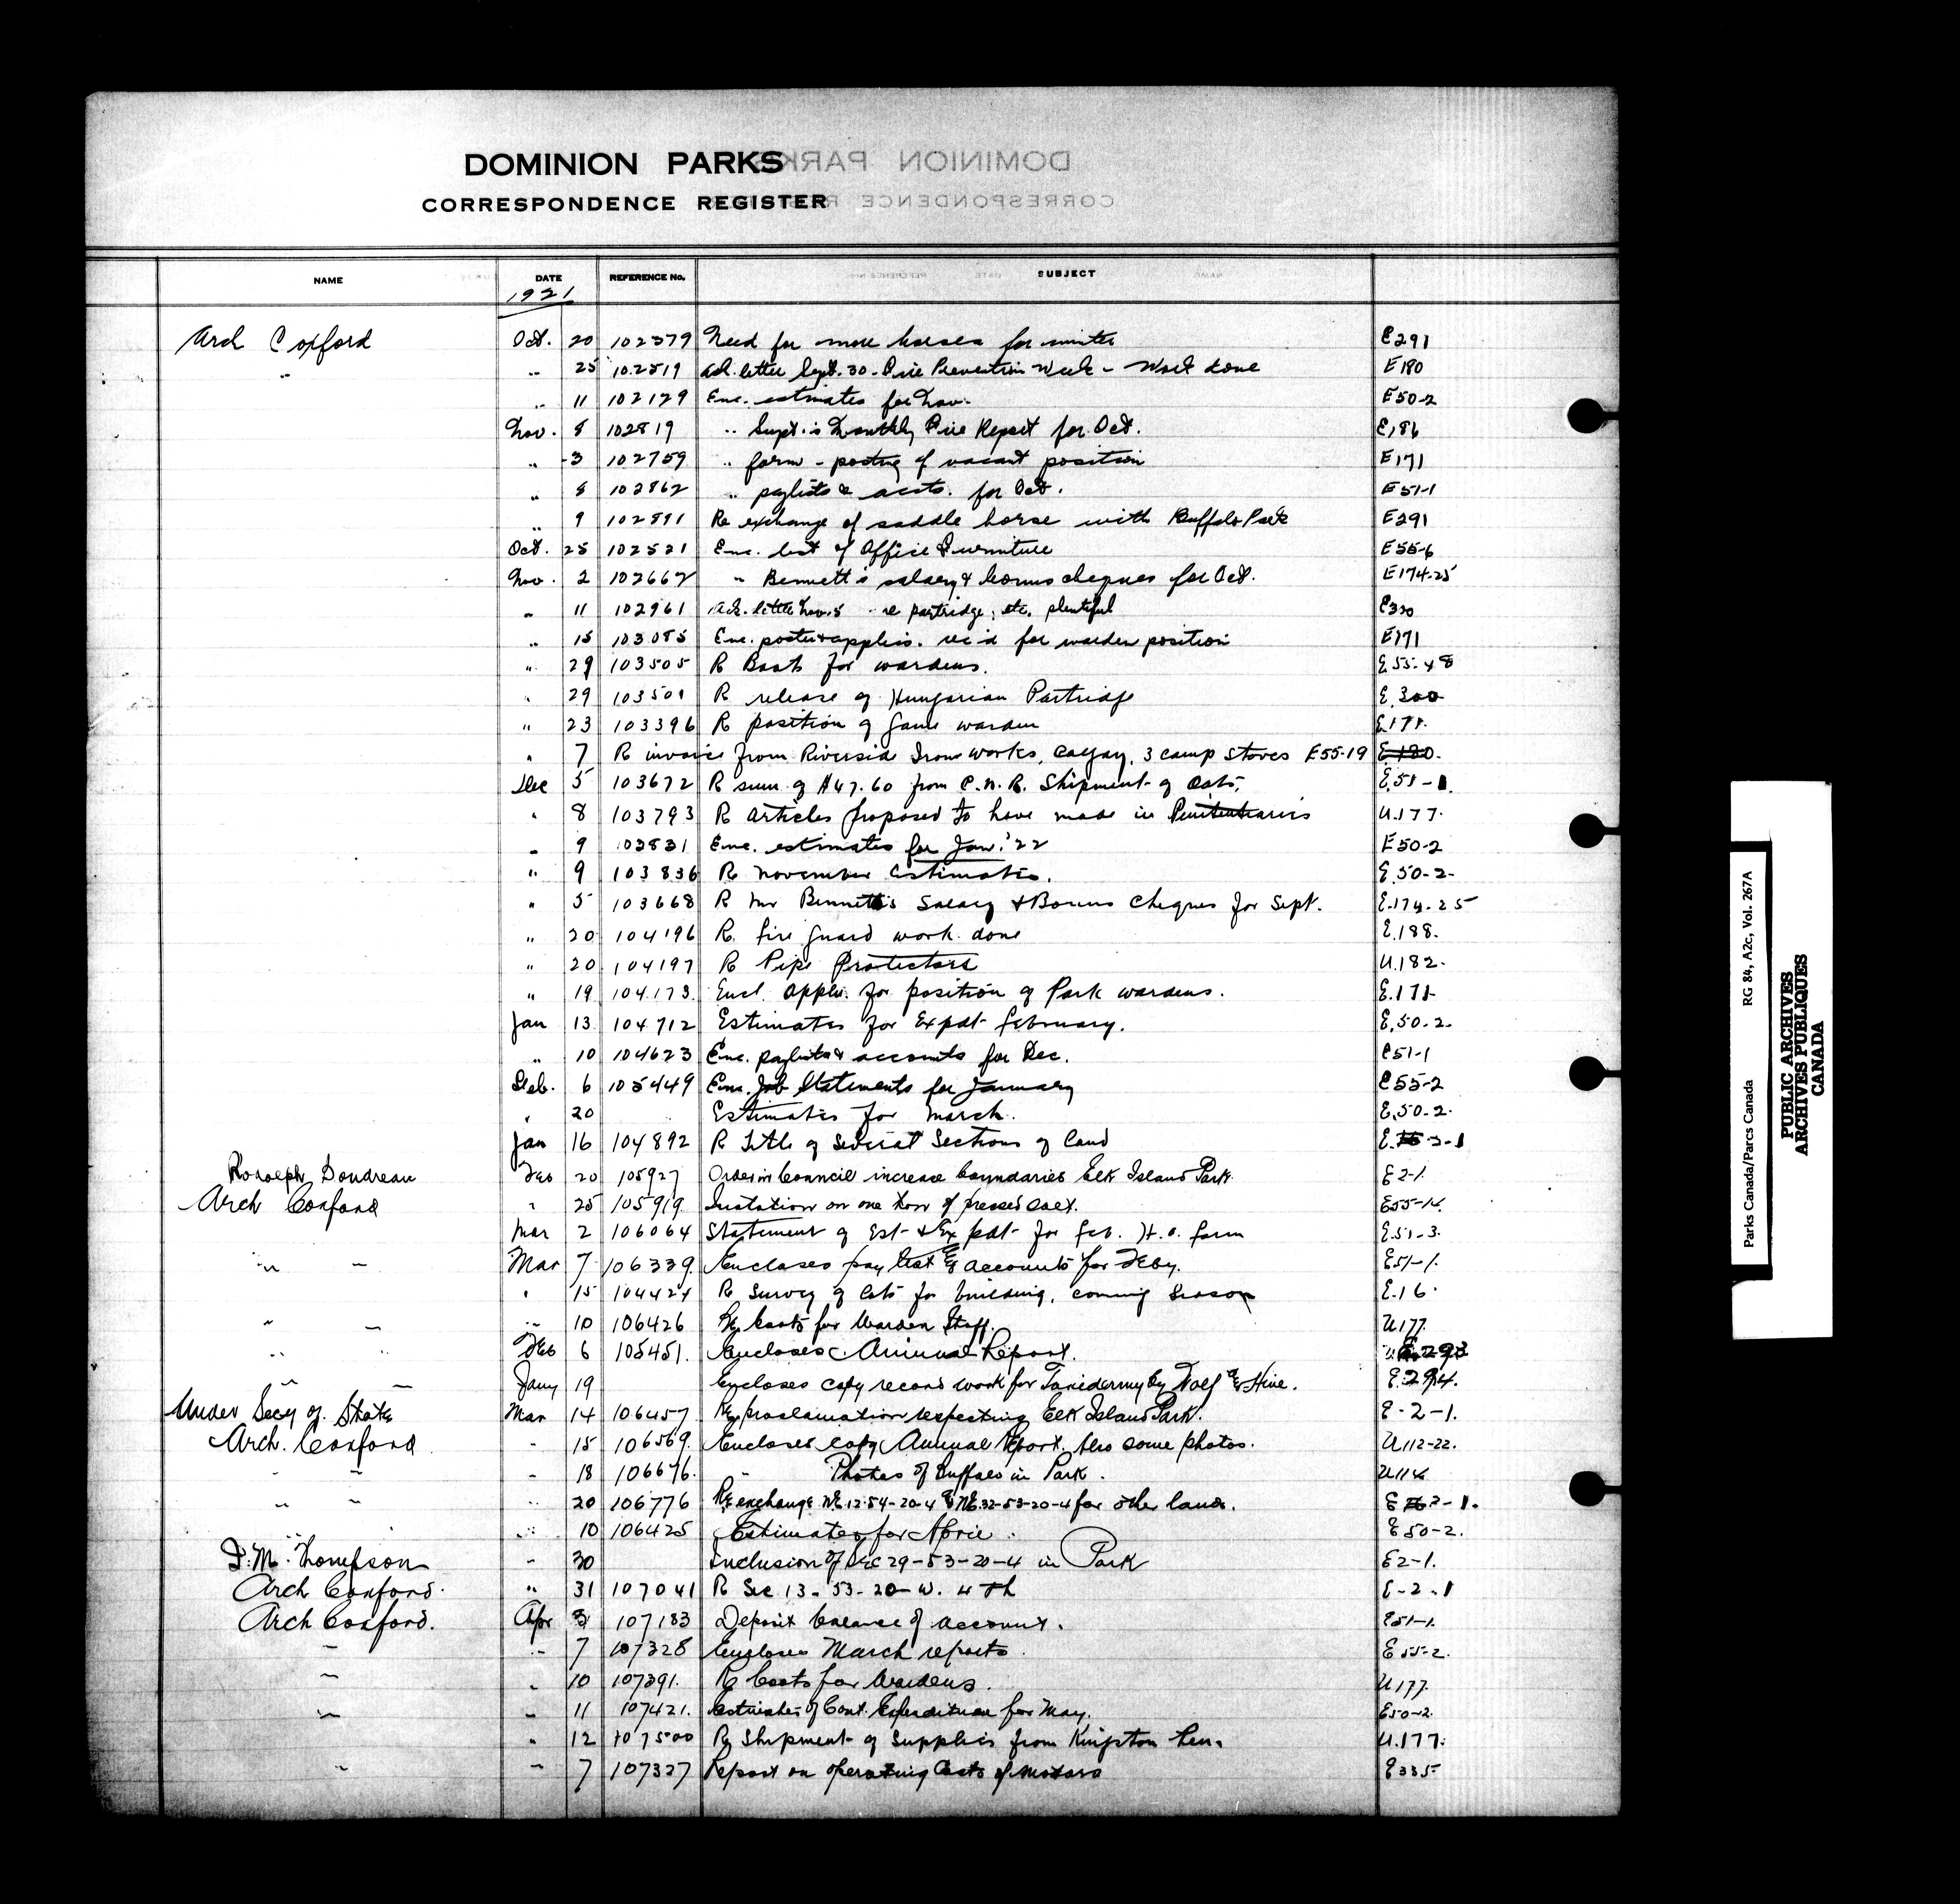 DOMINION PARKS
CORRESPONDENCE REGISTER
NAME DATE REFERENCE No. SUBJECT
1921
Arch Coxford Oct. 20 102379 Need for more horses for winter E291
" " 25 102519 Ack. letter Sept. 30 - Fire Prevention Week - Work done E180
" 11 102129 Enc. estimates for Nov. E50-2
Nov. 8 102819 " Supt.'s Monthly Fire Report for Oct. E186
" 3 102759 " form - posting of vacant position E171
" 8 102862 " paylists & accts. for Oct. E51-1
" 9 102891 Re exchange of saddle horse with Buffalo Park E291
Oct. 25 102521 Enc. list of Office Furniture E55-6
Nov. 2 102662 " Bennett's salary & bonus cheques for Oct. E174-25
" 11 102961 Ack. letter Nov. 5 re partridge, etc. plentiful
" 15 103085 Enc. poster & applics. rec'd for warden position E171
" 29 103505 R Boats for wardens. E.55-48
" 29 103501 R release of Hungarian Partridge E.300
" 23 103396 R position of Game warden E171.
" 7 R invoice from Riverside Iron Works, Calgary, 3 camp stoves E55-19 E.180.
Dec 5 103672 R sum of $47.60 from C.N.R. Shipment of Oats. E.51-1.
" 8 103793 R articles proposed to have made in Penitentiaries U.177.
" 9 103831 Enc. estimates for Jan. '22 E50-2
" 9 103836 R November Estimates. E.50-2-
" 5 103668 R Mr Bennett's Salary & Bonus Cheques for Sept. E.174-25
" 20 104196 R. fire guard work done E.188.
" 20 104197 R Pipe Protectors U.182.
" 19 104173. Encl. Applic. for position of Park wardens. E.171
Jan 13 104712 Estimates for Expdt February. E.50-2-
" 10 104623 Enc. paylists & accounts for Dec. E51-1
Feb. 6 105449 Enc. Job Statements for January E55-2
" 20 Estimates for March. E.50-2-
Jan 16 104892 R Title of Several Sections of land
Feb 20 105927 Order in Council increase boundaries Elk Island Park E2-1.
Arch Coxford " 25 105919 on one ton of pressed E55-14.
Mar 2 106064 Statement of Est & Expdt for Feb. H.O. form E.51-3.
" " Mar 7 106339 Encloses pay list & accounts for Feby. E51-1.
" 15 104424 R Survey of lots for building, coming Season E.16.
" " " 10 106426 Re boots for Warden Staff. U177.
" " Feb 6 105451. Encloses Annual Report.
" " Jany 19 Encloses copy record work for Taxidermy by Wolf & Hine. E.294.
Under Secy of State Mar 14 106457 Re proclamation respecting Elk Island Park. E-2-1.
Arch. Coxford " 15 106569. Encloses copy Annual Report. Also some photos. U112-22.
" " " 18 106676. " Photos of Buffalo in Park. U114
" " " 20 106776 Re exchange NE 12-54-20-4 & NE.32-53-20-4 for other land. E 2-1.
" " " 10 106425 Estimates for April. E50-2.
Thompson " 30 Inclusion of Sec 29-53-20-4 in Park E2-1.
Arch Coxford. " 31 107041 R Sec 13-53-20-W. 4th E-2-1
Arch Coxford. Apr 3 107183 Deposit balance of account. E51-1.
" " 7 107328 Encloses March reports. E55-2.
" " 10 107391. Re boots for Wardens. U177.
" " 11 107421. Estimates of Cont. Expenditure for May. E50-2.
" 12 107500 Re Shipment of Supplies from Kingston Pen. U.177.
" " 7 107327 Report on operating costs of motors E335
Parks Canada/Parcs Canada RG 84, A2c, Vol. 267A
PUBLIC ARCHIVES
ARCHIVES PUBLIQUES
CANADA